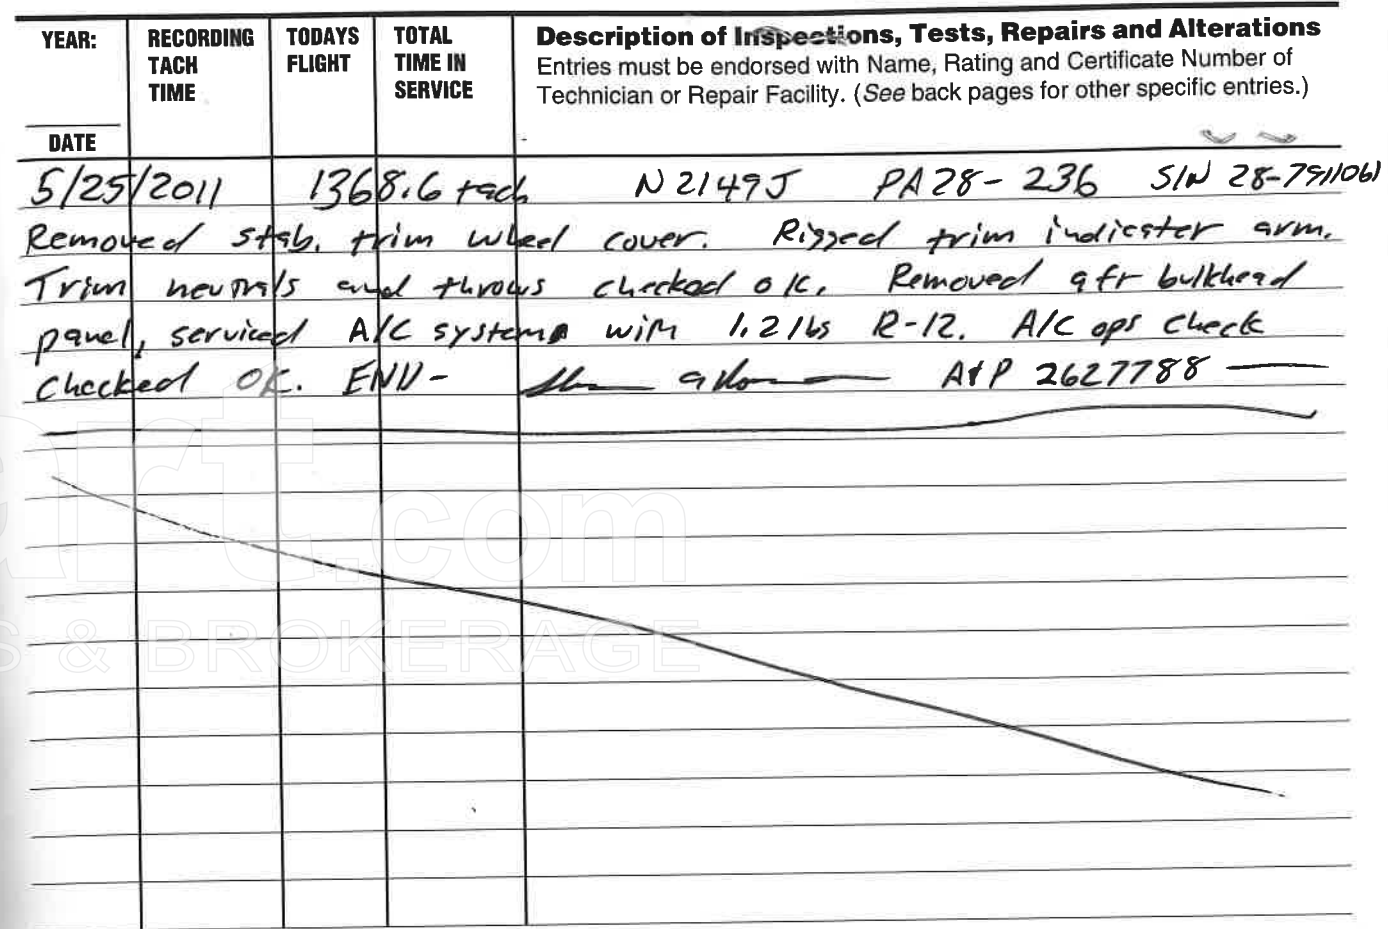 YEAR:
DATE
RECORDING
TACH
TIME
TODAYS
FLIGHT
TOTAL
TIME IN
SERVICE
Description of Inspections, Tests, Repairs and Alterations
Entries must be endorsed with Name, Rating and Certificate Number of
Technician or Repair Facility. (See back pages for other specific entries.)
5/25/2011 1368.6 tach N2149J PA28-236 S/N 28-7911061
Removed stab. trim wheel cover. Rigged trim indicater arm.
Trim neutrals and throws checked OK. Removed aft bulkhead
panel, serviced A/C system with 1.2 lbs R-12. A/C ops check
checked OK. END- A&P 2627788
art.com
S & BROKERAGE